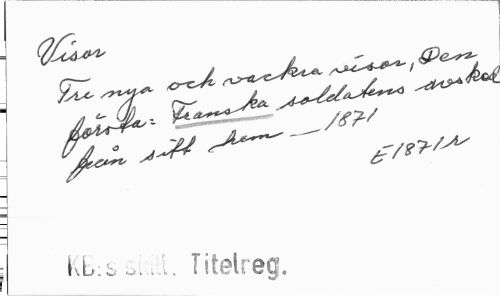 Visor
Tre nya och vackra visor, Den
första: Franska soldatens avsked
från sitt hem — 1871
E1871r
KB:s skill. Titelreg.